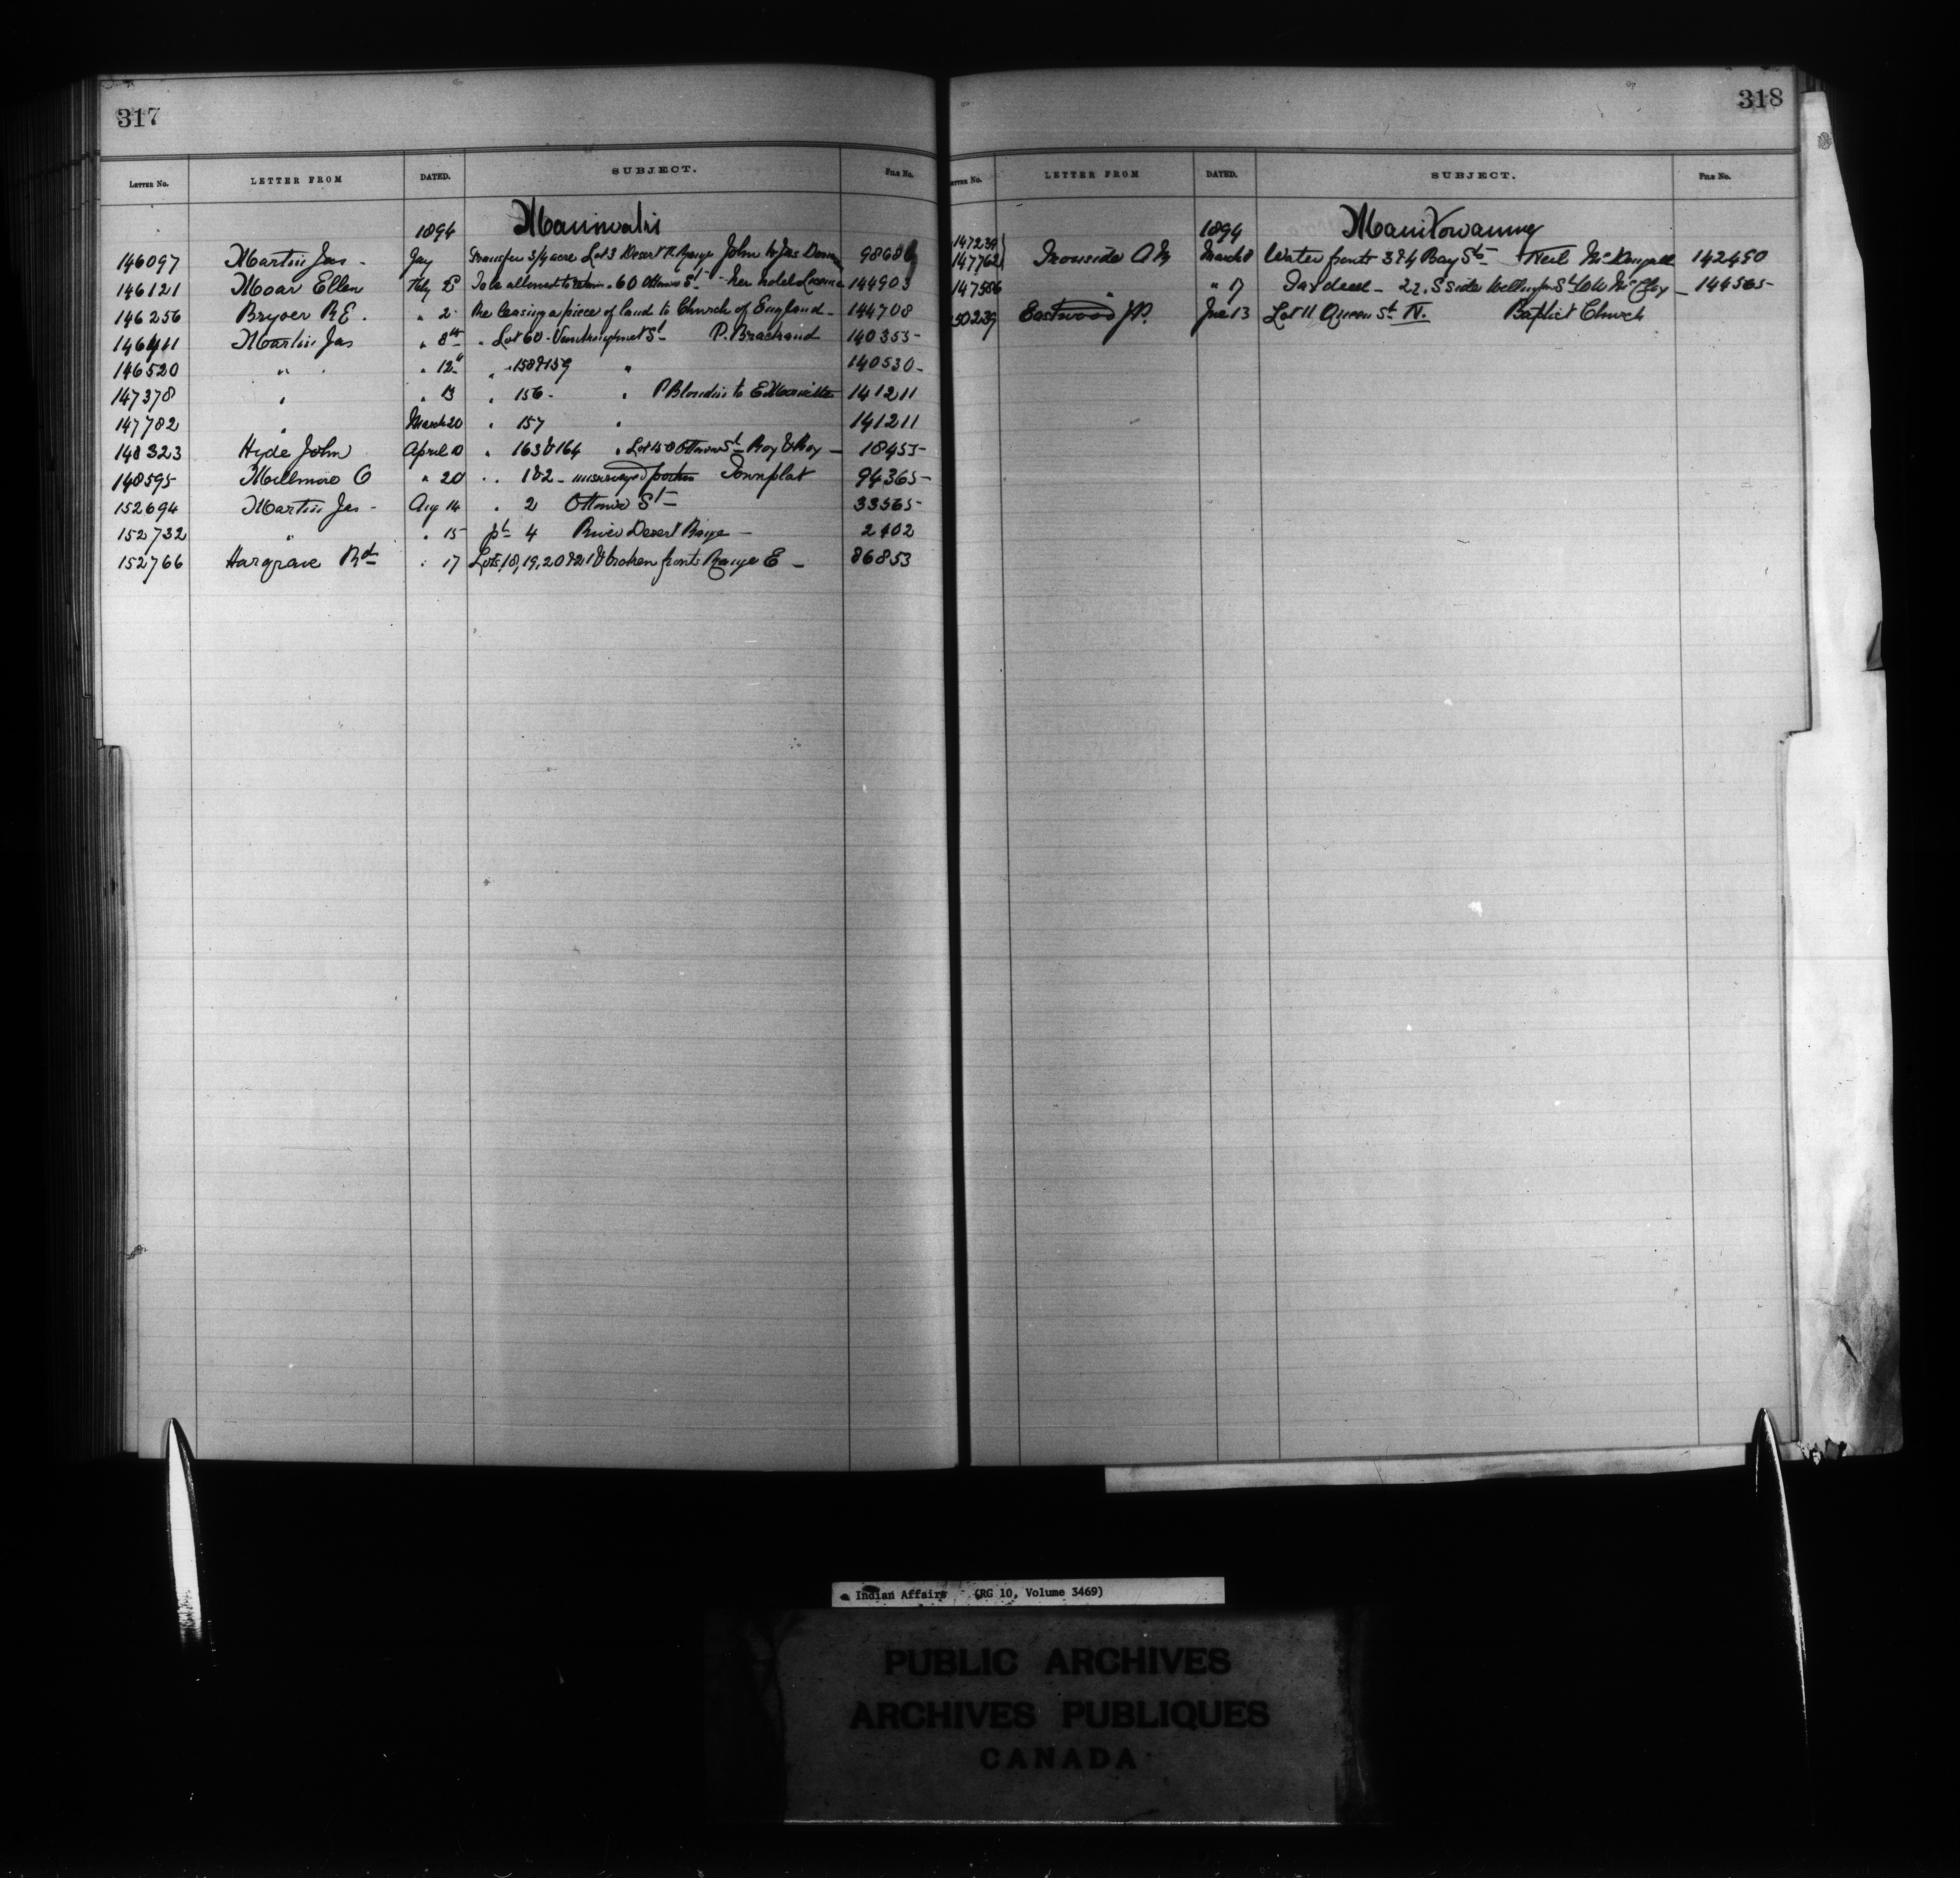 317
LETTER No. LETTER FROM DATED. SUBJECT. FILE No.
1894 Maniwaki
146097 Martin Jas - Jay Transfer 3/4 acre Lot 3 Desert R. Range John to Jas 9868
146121 Moar Ellen Feby To be allowed to retain . 60 Ottawa St - her hotel License 144903
146256 Bryoer R E . " 2 Re leasing a piece of land to Church of England - 144708
146411 Martin Jas " 8th " Lot 60 - St P. Brachand 140355-
146520 " " " 12th " " 158 & 159 " 140530-
147378 " " 13 " 156 - " P Blondin to E 141211
147782 " March 20 " 157 " 141211
148323 Hyde John April 10 " 163 & 164 " Lot 45 Ottawa St Roy & Roy - 18455-
148595- Millmore O " 20 " " 1 & 2 - unsurveyed portion Townplat 94365-
152694 Martin Jas - Aug 14 " 2 Ottawa St - 33565-
152732 " " 15 pt 4 River Desert Range - 2402
152766 Hargrave Rd " 17 Lots 18, 19, 20 & 21 & broken fronts Range E - 86853
318
LETTER No. LETTER FROM DATED. SUBJECT. FILE No.
1894 Manitowaning
147239
147762 Ironside A M March 8 Water fronts 3 & 4 Bay St - Neil McDougall 142490
147586 " " 17 Tax deed - 22. S side Wellington St - 144565-
50239 Eastwood J P. June 13 Lot 11 Queen St N. Baptist Church
Indian Affairs (RG 10, Volume 3469)
PUBLIC ARCHIVES
ARCHIVES PUBLIQUES
CANADA